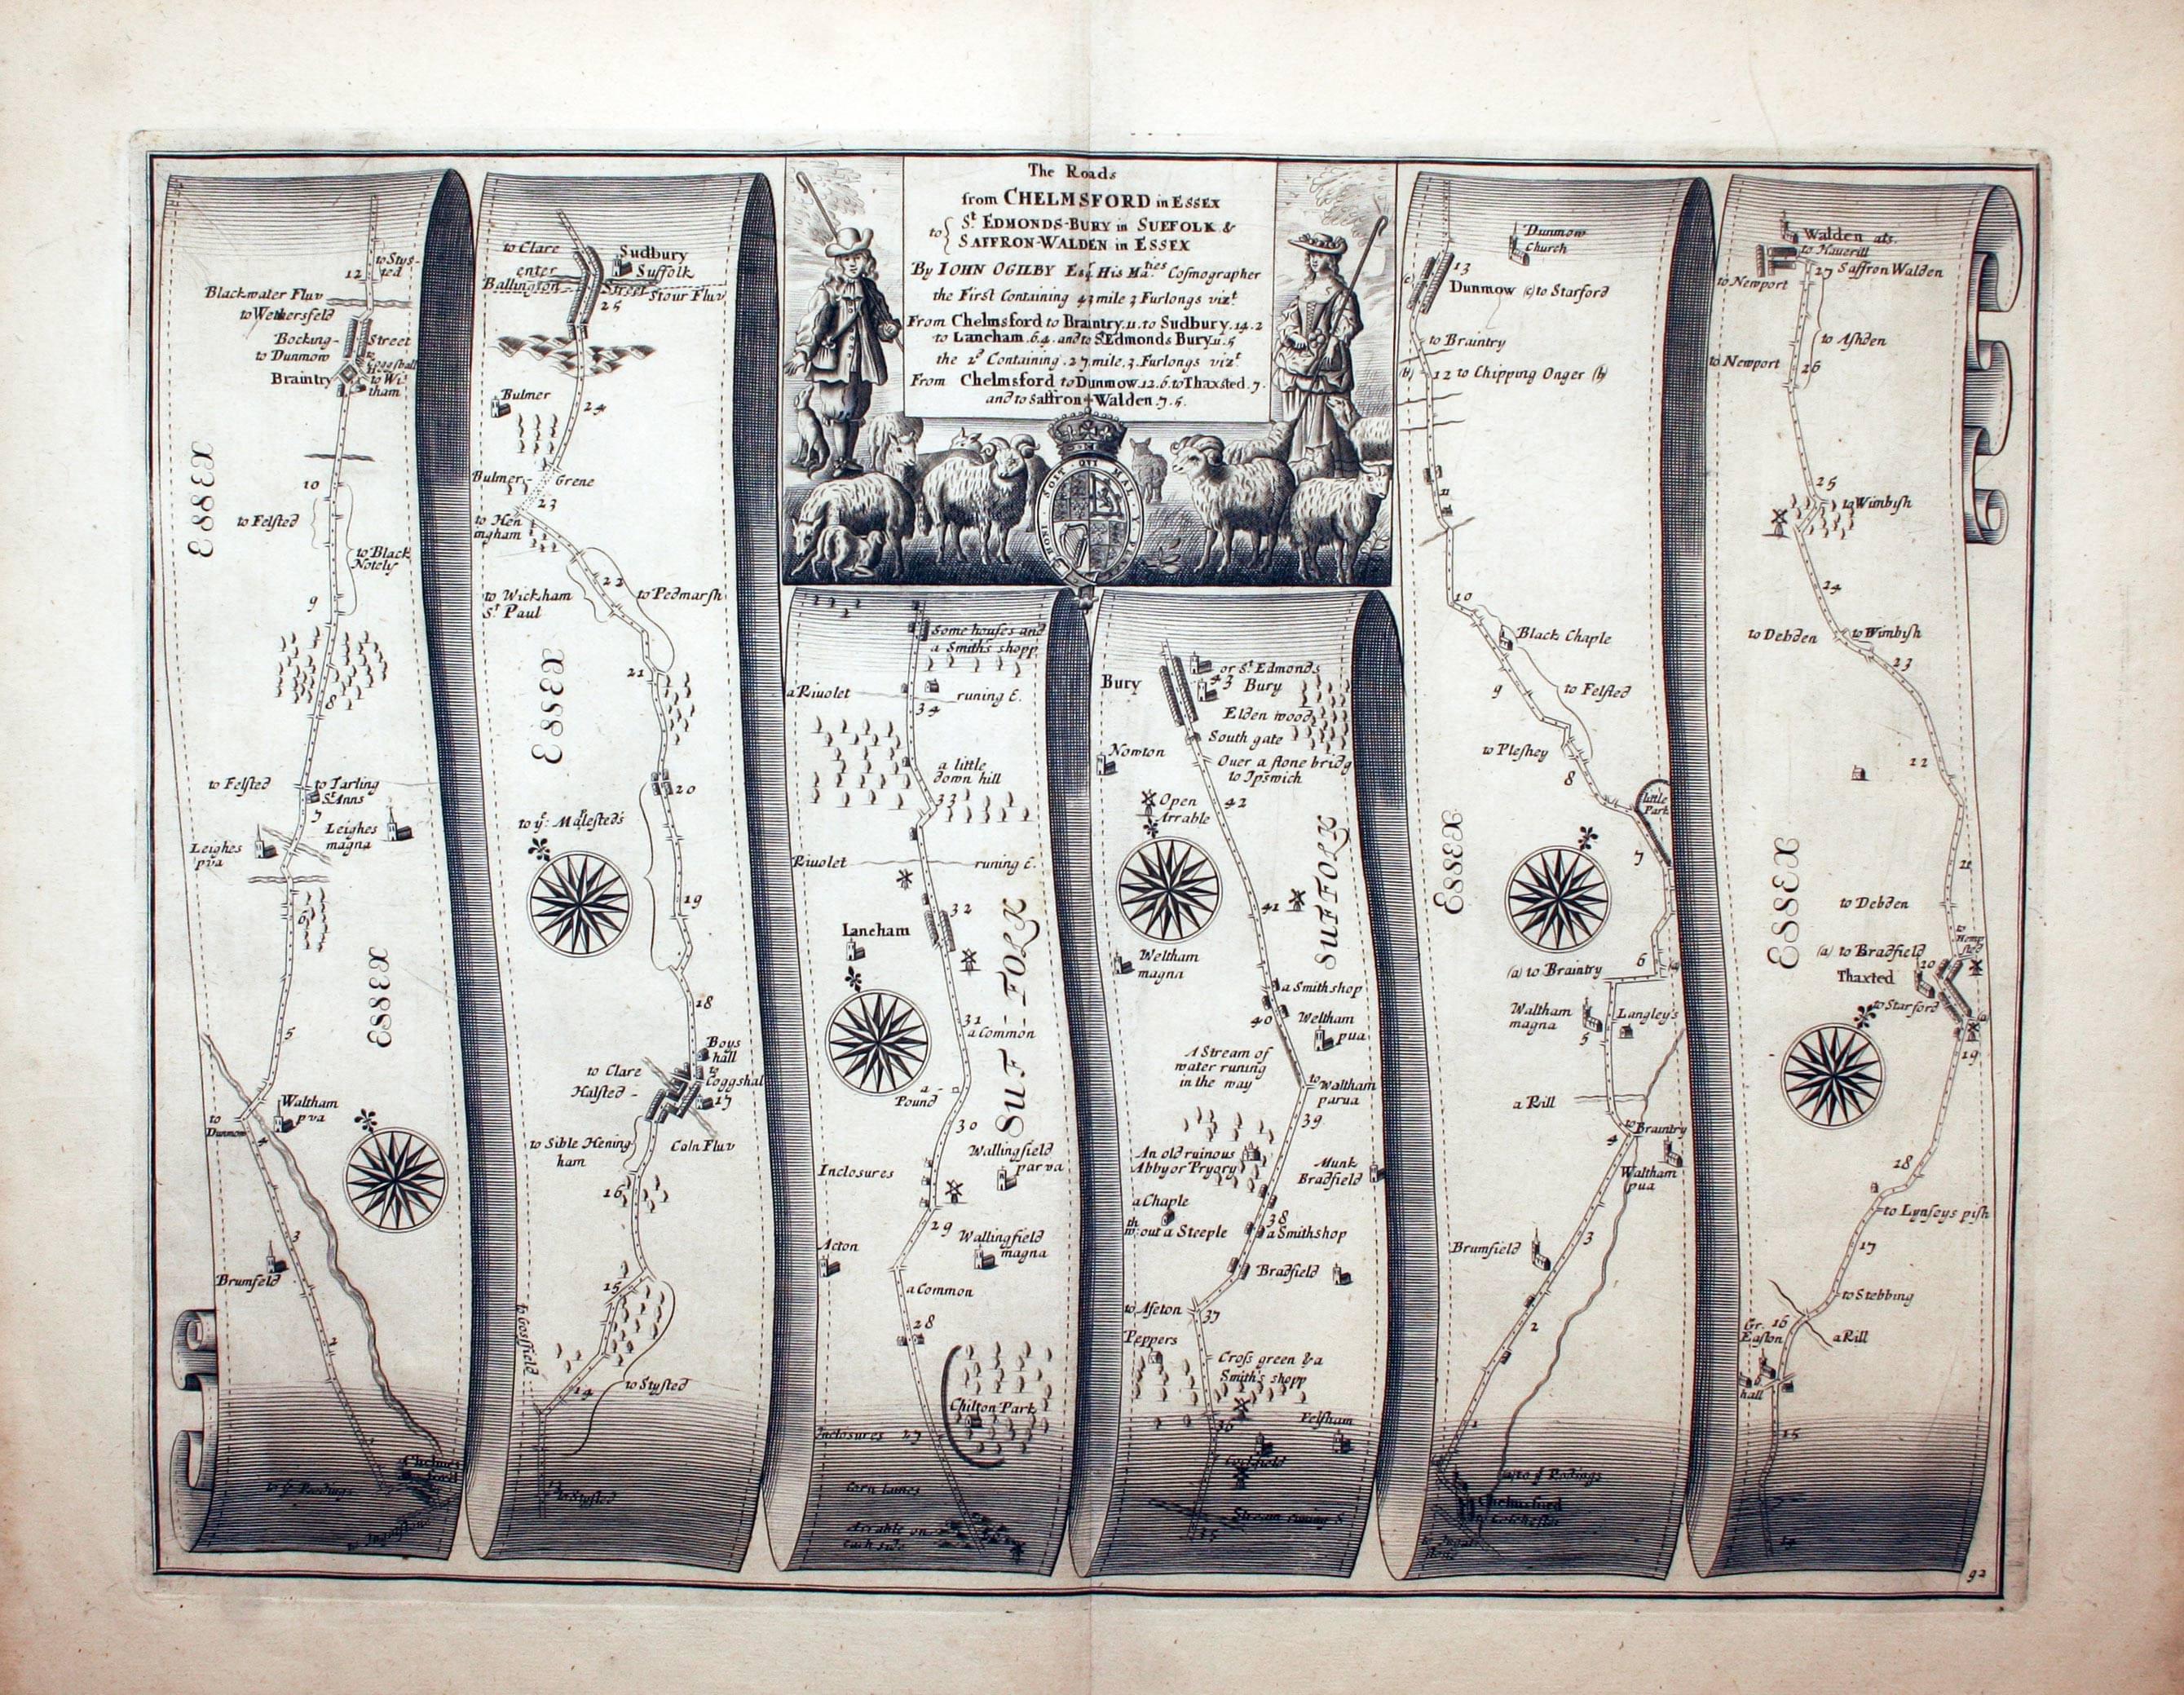 The Roads
from CHELMSFORD in ESSEX
to { St EDMONDS-BURY in SUFFOLK &
SAFFRON-WALDEN in ESSEX
By IOHN OGILBY Esqr His Maties Cosmographer
the First Containing 43 mile 3 Furlongs vizt
From Chelmsford to Braintry.11. to Sudbury.14.2
to Laneham.6.4. and to St Edmonds Bury.11.5
the 2d Containing.27.mile.3.Furlongs vizt
From Chelmsford to Dunmow.12.6. to Thaxsted.7.
and to Saffron Walden.7.5.
HONI SOIT QUI MAL Y PE
to Stysted
12
Blackwater Fluv
to Wethersfeld
Bocking- Street
to Dunmow
to Coggshall
Braintry
to Witham
10
to Felsted
to Black Notely
ESSEX
9
8
to Felsted
to Tarling
St Anns
7
Leighes magna
Leighes pva
6
ESSEX
5
Waltham pva
to Dunmow
4
3
Brumfeld
2
1
Chelmesford
to ye Rodings
to Ingatstone
to Clare
Sudbury
enter Suffolk
Ballington Street
Stour Fluv
25
Bulmer
24
Bulmer- Grene
23
to Heningham
22
to Wickham St Paul
to Pedmarsh
ESSEX
21
20
to ye Malesteds
19
18
Boys hall
to Clare
to Coggshal
Halsted -
17
to Sible Heningham
Coln Fluv
16
15
to Gosfield
14
to Stysted
13
to Stysted
Some houses and
a Smiths shopp
a Rivolet
runing E.
34
a little
down hill
33
Rivolet
runing E.
32
Laneham
31
a Common
SUFFOLK
a Pound
30
Wallingfield parva
Inclosures
29
Wallingfield magna
Acton
a Common
28
Chilton Park
Inclosures
27
Corn Lanes
Arrable on
each side
Bury
or St Edmonds
Bury
43
Elden wood
South gate
Nowton
Over a stone bridg
to Ipswich
42
Open
Arrable
SUFFOLK
41
Weltham
magna
a Smith shop
40
Weltham
pua
A Stream of
water runing
in the way
to Waltham
parua
39
An old ruinous
Abby or Pryory
Munk
Bradfield
a Chaple
wth:out a Steeple
38
a Smithshop
Bradfield
to Aseton
37
Peppers
Cross green & a
Smith's shopp
36
Felsham
Cockfield
Stream runing S
35
Dunmow
Church
13
(c)
Dunmow (c) to Starford
to Braintry
(b)
12 to Chipping Onger (b)
11
10
Black Chaple
9
to Felsted
to Pleshey
8
little
Park
7
ESSEX
6
(a) to Braintry
Waltham
magna
Langley's
5
a Rill
to Braintry
4
Waltham
pua
Brumfield
3
2
1
to ye Rodings
Chelmsford
to Colchester
Walden als.
to Haverill
27 Saffron Walden
to Newport
to Ashden
to Newport
26
25
to Wimbish
24
to Debden
to Wimbish
23
22
21
ESSEX
to Debden
to Hempsted
(a) to Bradfield
20
Thaxted
to Starford
(a)
19
18
to Lynseys pish
17
to Stebbing
16
Gr. Easton
a Rill
hall
15
14
92